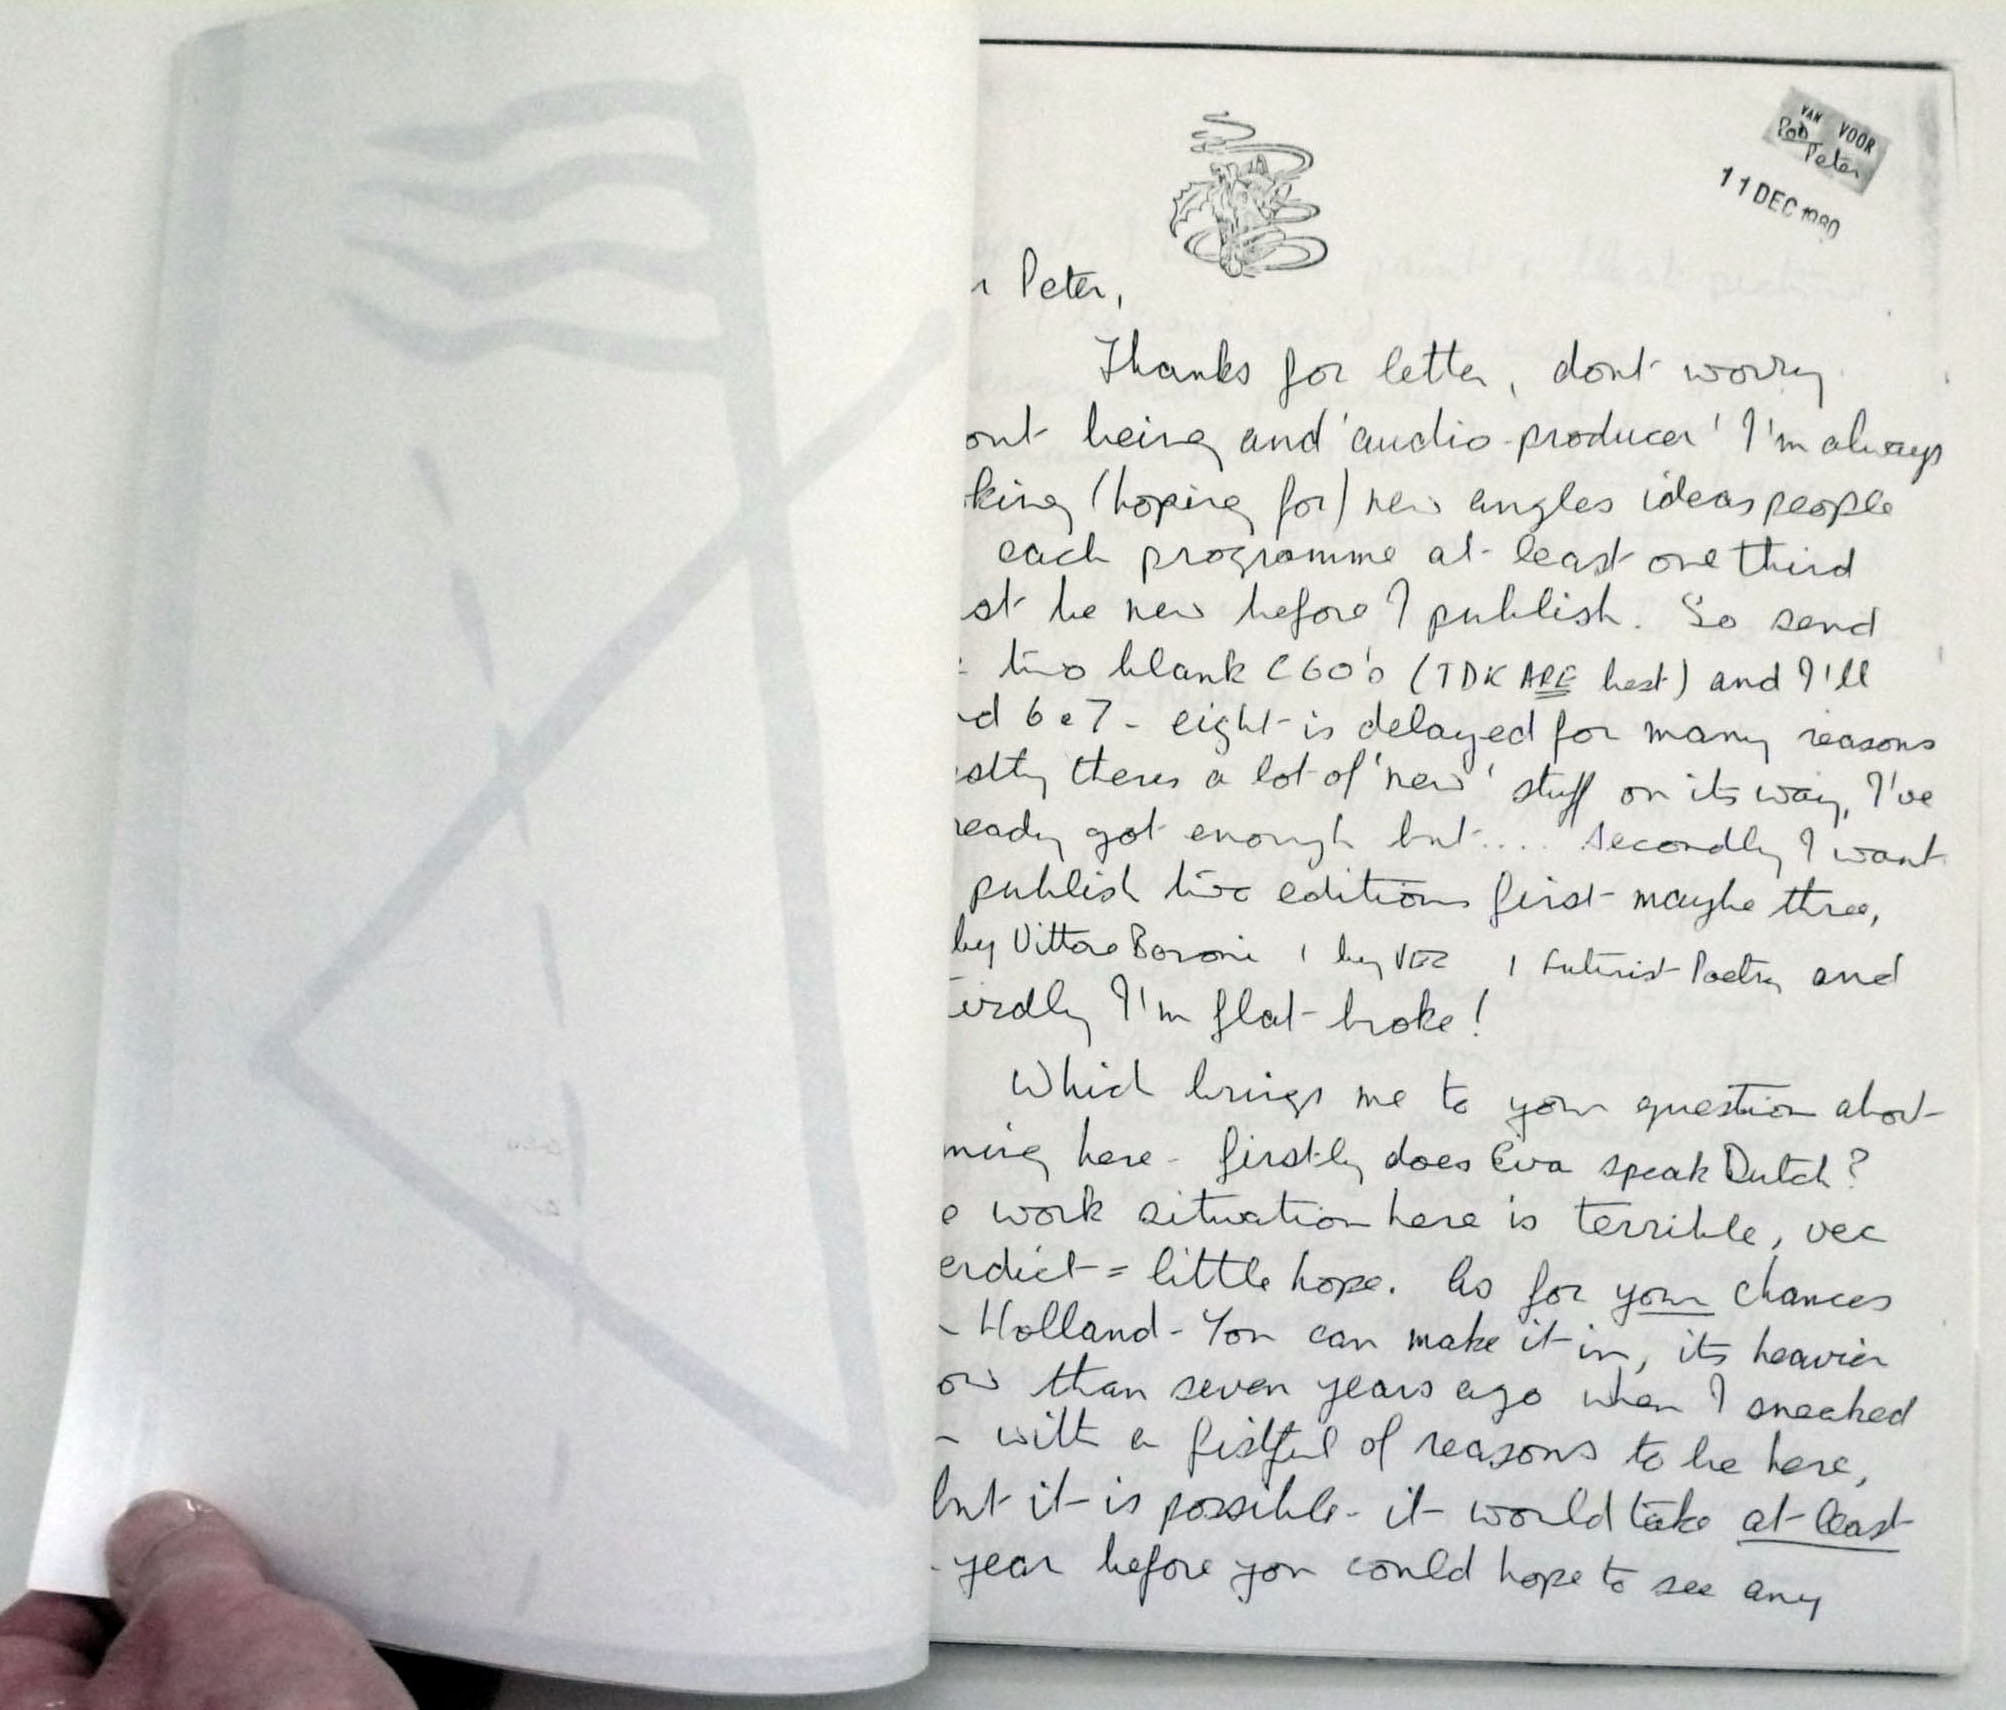 VAN VOOR
Rod Peter
11 DEC 1980
r Peter,
Thanks for letter, dont worry
out being and 'audio-producer' I'm always
king (hoping for) new angles ideas people
each programme at least one third
st be new before I publish. So send
two blank C60's (TDK ARE best) and I'll
nd 6 & 7 - eight is delayed for many reasons
stly theres a lot of 'new' stuff on its way, I've
ready got enough but.... secondly I want
publish two editions first maybe three,
by Vittore Baroni 1 by VEC 1 Futurist Poetry and
irdly I'm flat broke!
Which brings me to your question about
ming here - firstly does Eva speak Dutch?
e work situation here is terrible, vec
erdict = little hope. As for your chances
n Holland - You can make it in, its heavier
ow than seven years ago when I sneaked
n with a fistful of reasons to be here,
but it is possible - it would take at least
year before you could hope to see any